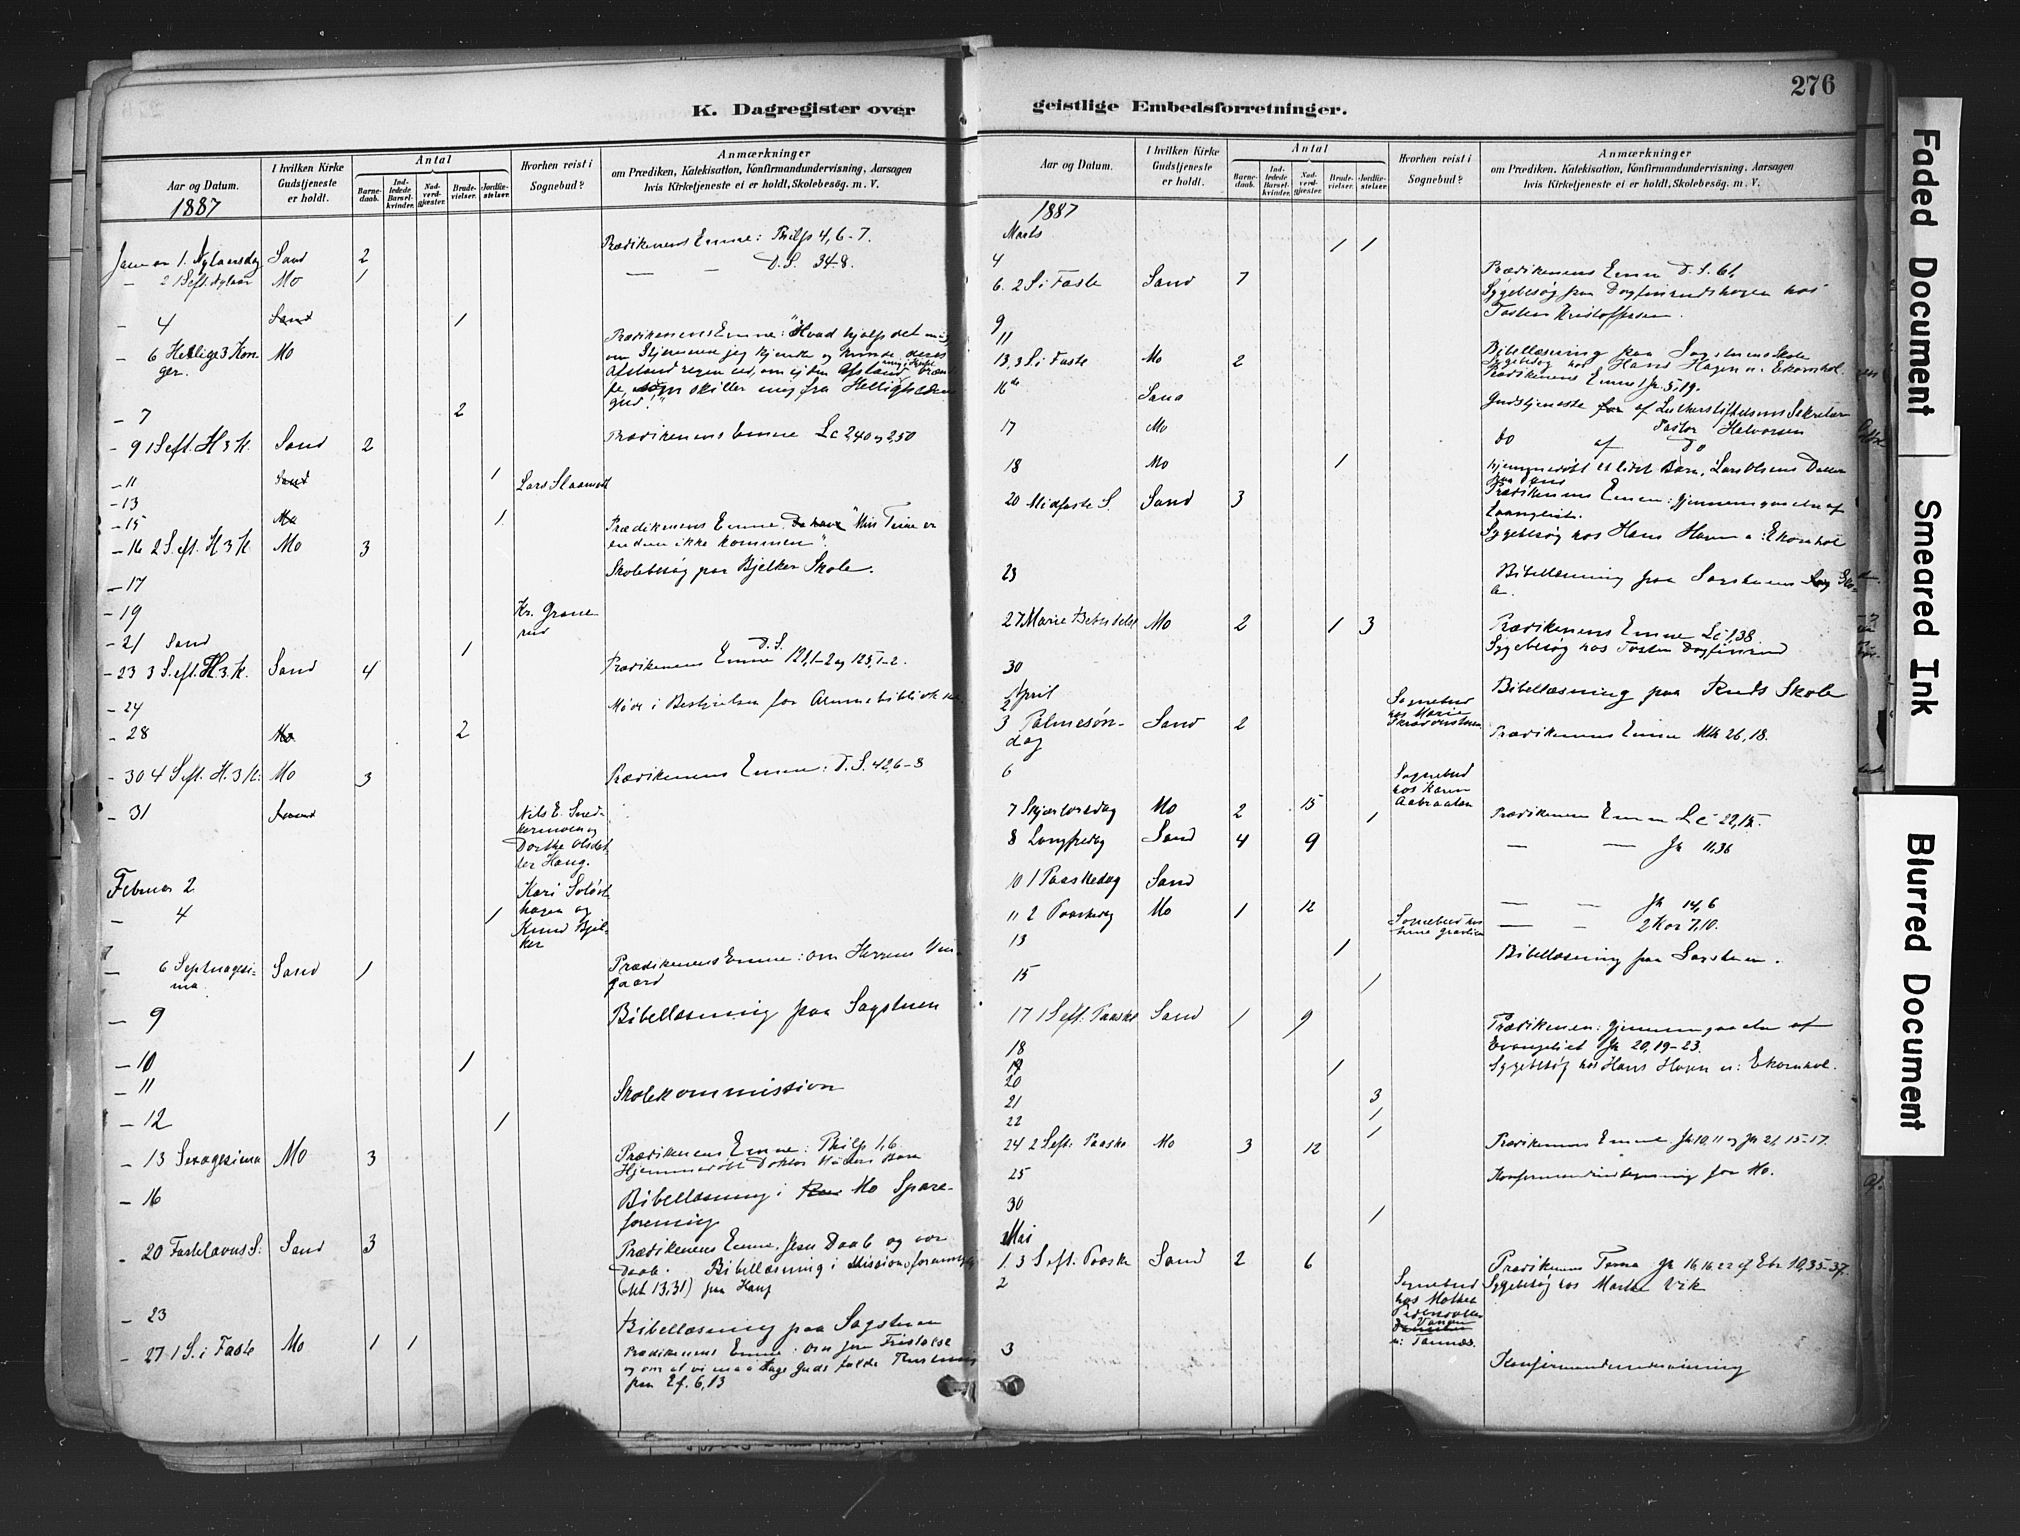 276
K. Dagregister over geistlige Embedsforretninger.
Aar og Datum.
I hvilken Kirke Gudstjeneste er holdt.
Antal
Barne-daab.
Ind-ledede Barsel-kvinder.
Nad-verd-gjester.
Brude-vielser.
Jordfæ-stelser.
Hvorhen reist i Sognebud?
Anmærkninger
om Prædiken, Katekisation, Konfirmandundervisning, Aarsagen
hvis Kirketjeneste ei er holdt, Skolebesøg. m. V.
1887
Januar 1. Nytaarsdag Sand 2 Prædikenens Emne: Philp 4, 6-7.
- 2 1 S eft. Nytaar Mo 1 — - D.S. 34.8.
- 4 Sand 1
- 6 Hellige 3 Kon- Mo Prædikenens Emne: "Hvad hjalp det mig,
ger. om Stjernerne jeg kjendte og kunde deres
Afstand regne ud, om ej den Afstand
skiller mig fra Helligheden
gud!"
- 7 2
- 9 1 S eft. H 3 K. Sand 2 Prædikenens Emne Lc 2 40 og 2 50
- 11 Sand 1 Lars Slaamodt
- 13
- 15 Mo 1
- 16 2 S. eft. H 3 K Mo 3 Prædikenens Emne "Min Time er
endnu ikke kommen".
- 17 Skolebesøg paa Bjelker Skole.
- 19 Kr. Grane-
rud
- 21 Sand 1
- 23 3 S. eft. H. 3 K. Sand 4 Prædikenens Emne D.S. 121,1-2 og 125,1-2.
- 24 Møde i Bestyrelsen for
- 28 Mo 2
- 30 4 S eft. H. 3 K. Mo 3 Prædikenens Emne: D.S. 42,6-8
- 31 Nils E.
Dorthe Olsdat-
ter Haug.
Februar 2 Kari
hagen og
- 4 1 Knud Bjel-
ker
- 6 Septuagesi- Sand 1 Prædikenens Emne: om Herrens Vin-
ma gaard
- 9 Bibellæsning paa Sagstuen
- 10 1
- 11 Skolekommission
- 12 1
- 13 Sexagesima Mo 3 Prædikenens Emne: Philp 1,6
Hjemmedøbt Doktor Barn
- 16 Bibellæsning i Mo Spare-
forening
- 20 Fastelavns S. Sand 3 Prædikenens Emne. Jesu Daab og vor
Daab. Bibellæsning i Missionsforening
(Mt 13,31) paa Haug
- 23 Bibellæsning paa Sagstuen
- 27 1 S. i Faste Mo 1 1 Prædikenens Emne: om Jesu Fristelse
og om at vi maa tage Guds fulde Rustning
paa Ef. 6,13
Aar og Datum.
I hvilken Kirke Gudstjeneste er holdt.
Antal
Barne-daab.
Ind-ledede Barsel-kvinder.
Nad-verd-gjester.
Brude-vielser.
Jordfæ-stelser.
Hvorhen reist i Sognebud?
Anmærkninger
om Prædiken, Katekisation, Konfirmandundervisning, Aarsagen
hvis Kirketjeneste ei er holdt, Skolebesøg. m. V.
1887
Marts
4 1 1
6. 2 S. i Faste Sand 7 Prædikenens Emne D.S. 61,
Sygebesøg paa Dagfinrudshagen hos
Kristoffersen.
9
11 Bibellæsning paa Sagstuens Skole
13. 3 S. i Faste Mo 2 Sygebesøg hos Hans Hagen u. Ekornhol.
Prædikenens Emne Jh. 5,19.
16 Sand Gudstjeneste af Lutherstiftelsens Sekretær
Pastor Halvorsen
17 Mo do af do
18 Mo 1 Hjemmedøbt et lidet Barn, Lars Olsens
20 Midfaste S. Sand 3 Prædikenens Emne: Gjennemgaaelse af
Evangeliet.
Sygebesøg hos Hans Hagen u: Ekornhol
23 Bibellæsning paa Sagstuens Sko-
le.
27 Marie Bebudelse Mo 2 1 3 Prædikenens Emne Lc 1,38.
Sygebesøg hos Dagfinrud
30 Bibellæsning paa Ruds Skole
April
2 Sognebud
hos Marie
3 Palmesøn- Sand 2 Prædikenens Emne Mth 26,18.
dag
6 Sognebud
hos Karen
Aabraaten
7 Skjærtorsdag Mo 2 15 1 Prædikenens Emne Lc 22,15.
8 Langfredag Sand 4 9 — — Jh 11.36
10 1 Paaskedag Sand — - Jh 14,6
11 2 Paaskedag Mo 1 12 — - 2 Kor 7,10.
13 1 Sognebud hos Bibellæsning paa Sagstuen.
15 1
17 1 S eft. Paaske Sand 1 9 Prædikenen: Gjennemgaaelse af
Evangeliet Jh 20,19-23.
18 Sygebesøg hos Hans Hagen u: Ekornhol.
19 1
20
21 3
22 1
24 2 S eft. Paaske Mo 3 12 1 Prædikenens Emne Jh 10,11 og Jh 21, 15-17.
25 Konfirmandindtegning for Mo.
30 1
Mai
1. 3 S eft. Paaske Sand 2 6 Prædikenens Tema Jh 16,16.22 cf Ebr 10,35-37.
2 Sognebud Sygebesøg hos Marthe Vik
hos
Vangen
u: Tannæs.
3 Konfirmandundervisning
Faded Document
Smeared Ink
Blurred Document